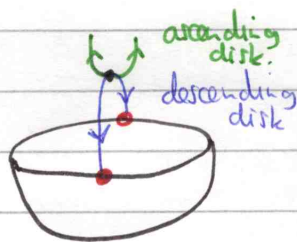 ascending
disk.
descending
disk